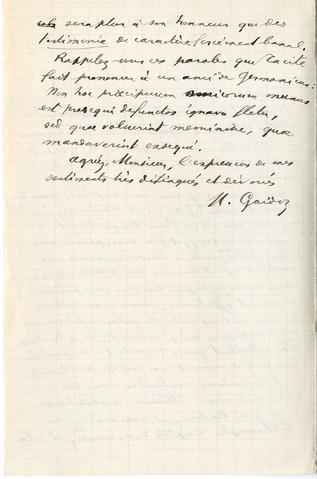 cela sera plus à son honneur que des
testimonia de caractère forcément banal.
Rappelez-vous ces paroles que Tacite
fait prononcer à un ami de Germanicus:
Non hoc præcipuum amicorum munus
est prosequi defunctos ignavo fletu,
sed quae voluerint meminisse, quae
mandaverint exsequi.
Agréez, Monsieur, l'expression de mes
sentiments très distingués et dévoués
H. Gaidoz